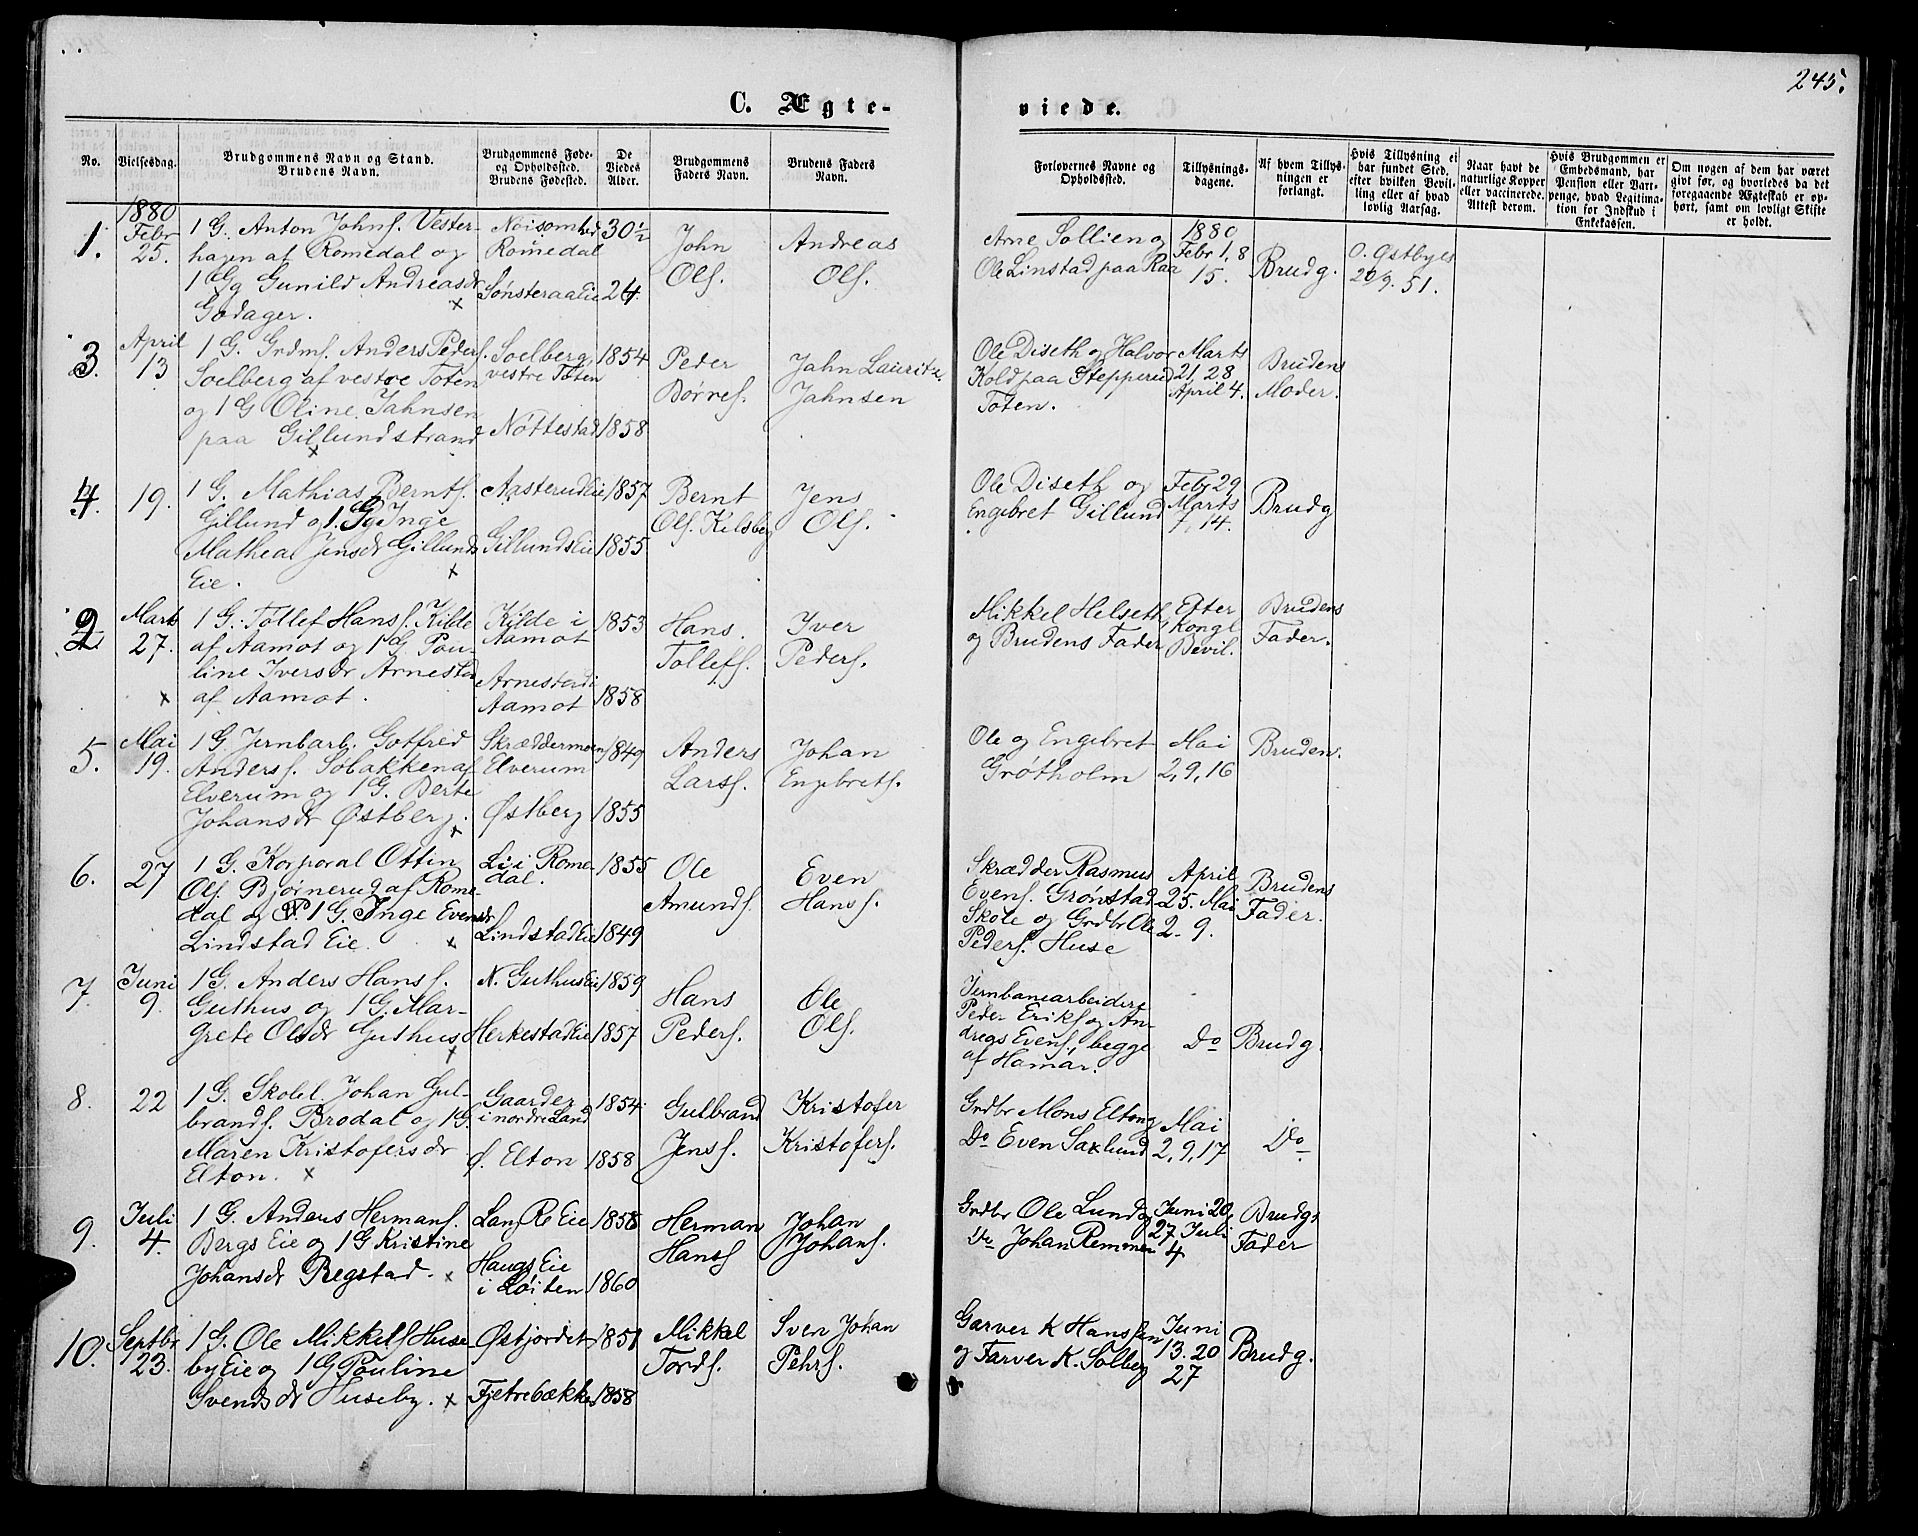 245.
C. Ægte-
viede.
No.
Vielsesdag.
Brudgommens Navn og Stand.
Brudens Navn.
Brudgommens Føde-
og Opholdssted.
Brudens Fødested.
De
Viedes
Alder.
Brudgommens
Faders Navn.
Brudens Faders
Navn.
Forlovernes Navne og
Opholdssted.
Tillysnings-
dagene.
Af hvem Tillys-
ningen er
forlangt.
Hvis Tillysning ei
har fundet Sted,
efter hvilken Bevil-
ling eller af hvad
lovlig Aarsag.
Naar havt de
naturlige Kopper
eller vaccinerede.
Attest derom.
Hvis Brudgommen er
Embedsmand, har
Pension eller Vart-
penge, hvad Legitima-
tion for Indskud i
Enkekassen.
Om nogen af dem har været
givt før, og hvorledes da det
foregaaende Ægteskab er op-
hørt, samt om lovligt Skifte
er holdt.
1.
1880
Febr
25.
1 G. Anton Johns. Vester-
hagen af Romedal og
1 Gg Gunild Andreasdr
Godager. x
Noisomhed
Romedal
Sønsteraa Eie
30½
24
John
Ols.
Andreas
Ols.
Arne Sollien og
Ole Linstad paa Raa
1880
Febr 1, 8
15.
Brudg.
O. Østbyes
20/9. 51.
3.
April
13
1 G. Grdms. Anders Peders.
Soelberg af vestre Toten
og 1 G Oline Jahnsen
paa Gillundstrand
x
Soelberg
vestre Toten
Nøttestad
1854
1858
Peder
Børres.
Jahn Lauritz
Jahnsen
Ole Diseth og Halvor
Kold paa Stepperud
Toten.
Marts
21, 28
April 4.
Brudens
Moder.
4.
19.
1 G. Mathias Bernts.
Gillund og 1. Pg Inge
Mathea Jensdr Gillunds
Eie. x
Aasterud Eie
Gillunds Eie
1857
1855
Bernt
Ols. Kilsberg
Jens
Ols.
Ole Diseth og
Engebret Gillund
Feb 29
Marts
7, 14.
Brudg
2
Marts
27.
x
1 G. Tollef Hans s. Kilde
af Aamot og 1 G. Pau-
line Iversdr Arnestad
af Aamot.
Kilde i
Aamot
Arnestad i
Aamot
1853
1858
Hans
Tollefs.
Iver
Peders.
Mikkel Helseth
og Brudens Fader
Efter
Kongl
Bevil.
Brudens
Fader.
5.
Mai
19.
1 G. Jernbarb. Gotfred
Anders s. Solbakken af
Elverum og 1 G. Berte
Johansdr Østberg. x
Skræddermoen
Elverum
Østberg
1849
1855
Anders
Lars s.
Johan
Engebrets.
Ole og Engebret
Grøtholm
Mai
2, 9, 16
Bruden.
6.
27
1 G. Korporal Ottin
Ols. Bjørnerud af Rome-
dal og P. 1 G. Inge Evensdr
Lindstad Eie. x
Li i Rome-
dal.
Lindstad Eie
1855
1849
Ole
Amunds.
Even
Hans s.
Skrædder Rasmus
Evens. Grønstad
Skole og Grdbr Ole
Peders. Huse
April
25. Mai
2. 9.
Brudens
Fader.
7.
Juni
9.
1 G. Anders Hans s.
Guthus og 1 G. Mar-
grete Olsdr Guthus
x
N. Guthus Eie
Herkestad Eie
1859
1857
Hans
Peders.
Ole
Ols.
Jernbanearbeidere
Peder Eriks og An-
dreas Evens, begge
af Hamar.
Do
Brudg.
8.
22
1 G. Skolel. Johan Gul-
brands. Brodal og 1 G.
Maren Kristofersdr
Elton. x
Gaarder
i nordre Land
Ø. Elton
1854
1858
Gulbrand
Jens s.
Kristofer
Kristofers.
Grdbr Mons Elton og
Do Even Saxlund
Mai
2, 9, 17
Do
9.
Juli
4.
1 G. Anders Hermans.
Bergs Eie og 1 G Kristine
Johansdr Regstad. x
Lang Re Eie
Haugs Eie
i Løiten
1860
Herman
Hans s
Johan
Johans.
Grdbr Ole Lund og
Do Johan Remmen
Juni 20,
27 Juli
4
Brudgs
Fader
10.
Septbr
23.
1 G. Ole Mikkels Huse-
by Eie og 1 G Pauline
Svendsdr Huseby. x
Østjordet
Fjetrebakke
1851
1858
Mikkel
Tords.
Sven Johan
Pehrs.
Garver K Hanssen
og Farver K. Solberg
Juni
13. 20
27
Brudg.